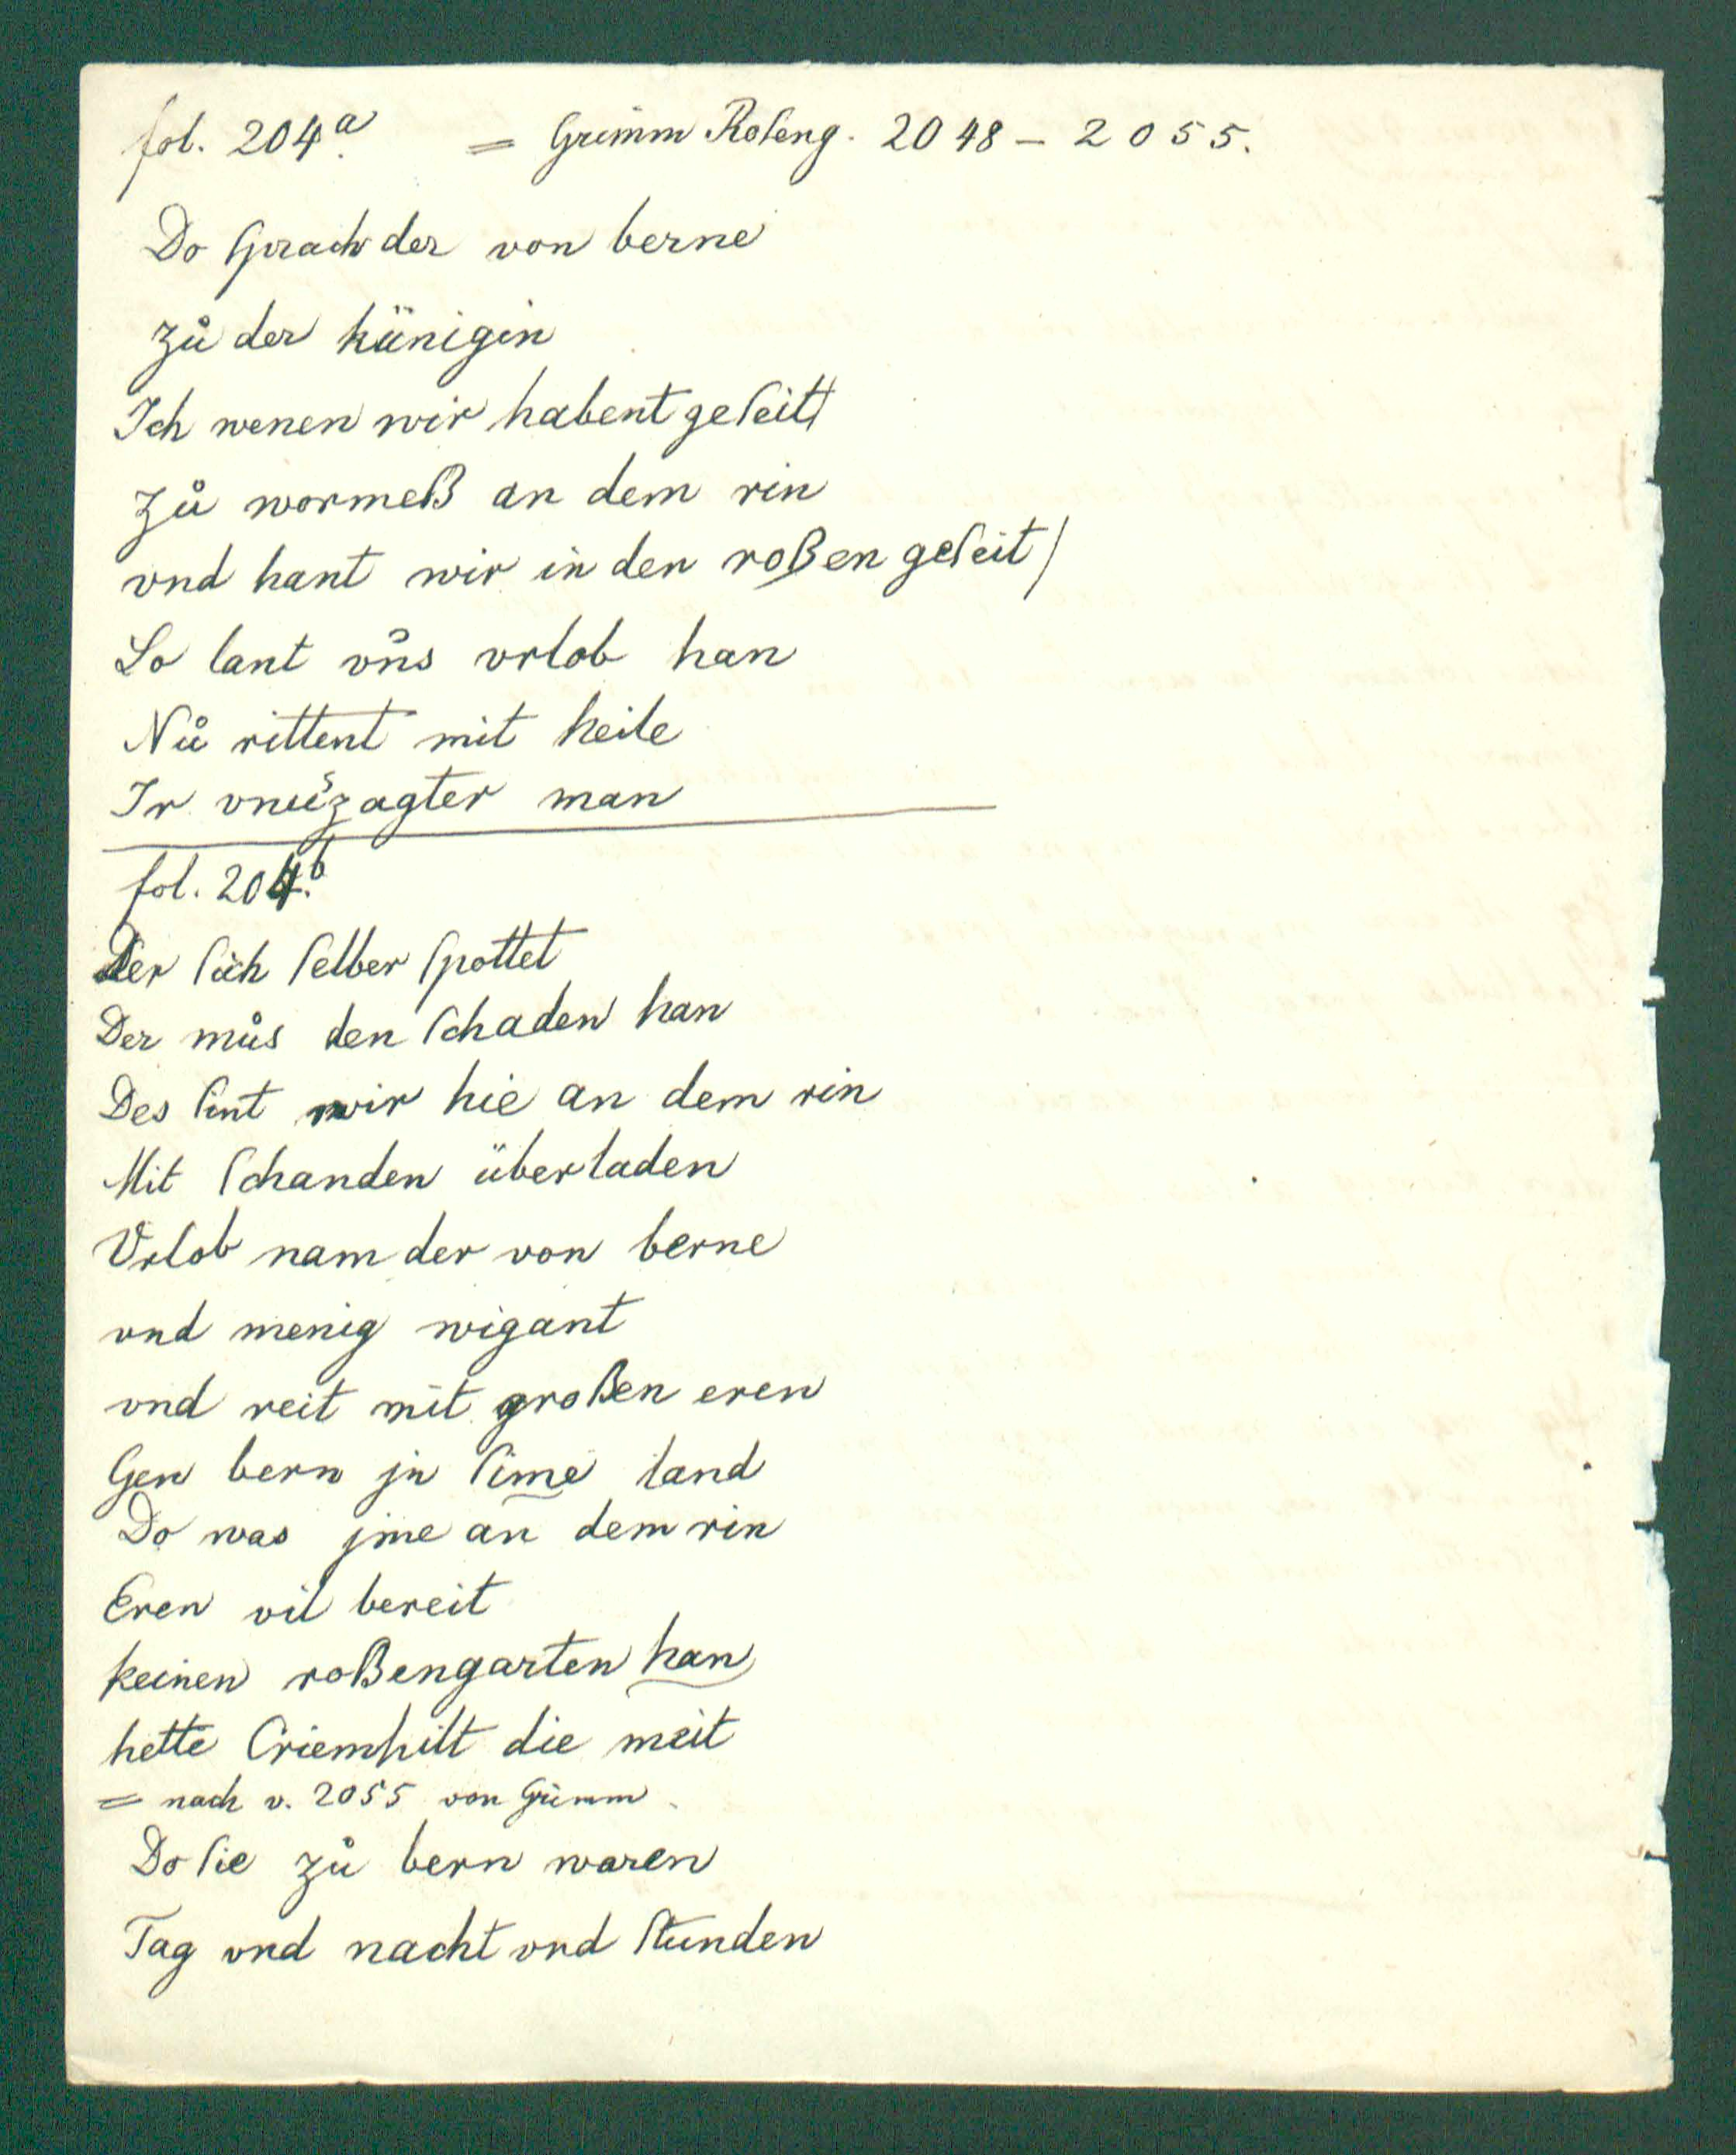 fol. 204.a = Grimm Roſeng. 2048 – 2055.
Do ſprach der von berne
zů der künigin
Ich wenen wir habent geſeit
zů wormeß an dem rin
vnd hant wir in den roßen geſeit /
So lant vn̊s vrlob han
Nů rittent mit heile
Ir vnuͤzagter man
fol. 204.b
Der ſich ſelber ſpottet
Der můs den ſchaden han
Des ſint wir hie an dem rin
Mit ſchanden überladen
Vrlob nam der von berne
vnd menig wigant
vnd reit mit großen eren
Gen bern jn ſime land
Do was jme an dem rin
Eren vil bereit
keinen roßengarten han
hette Criemhilt die meit
= nach v. 2055 von Grimm
Do ſie zů bern waren
Tag vnd nacht vnd ſtunden